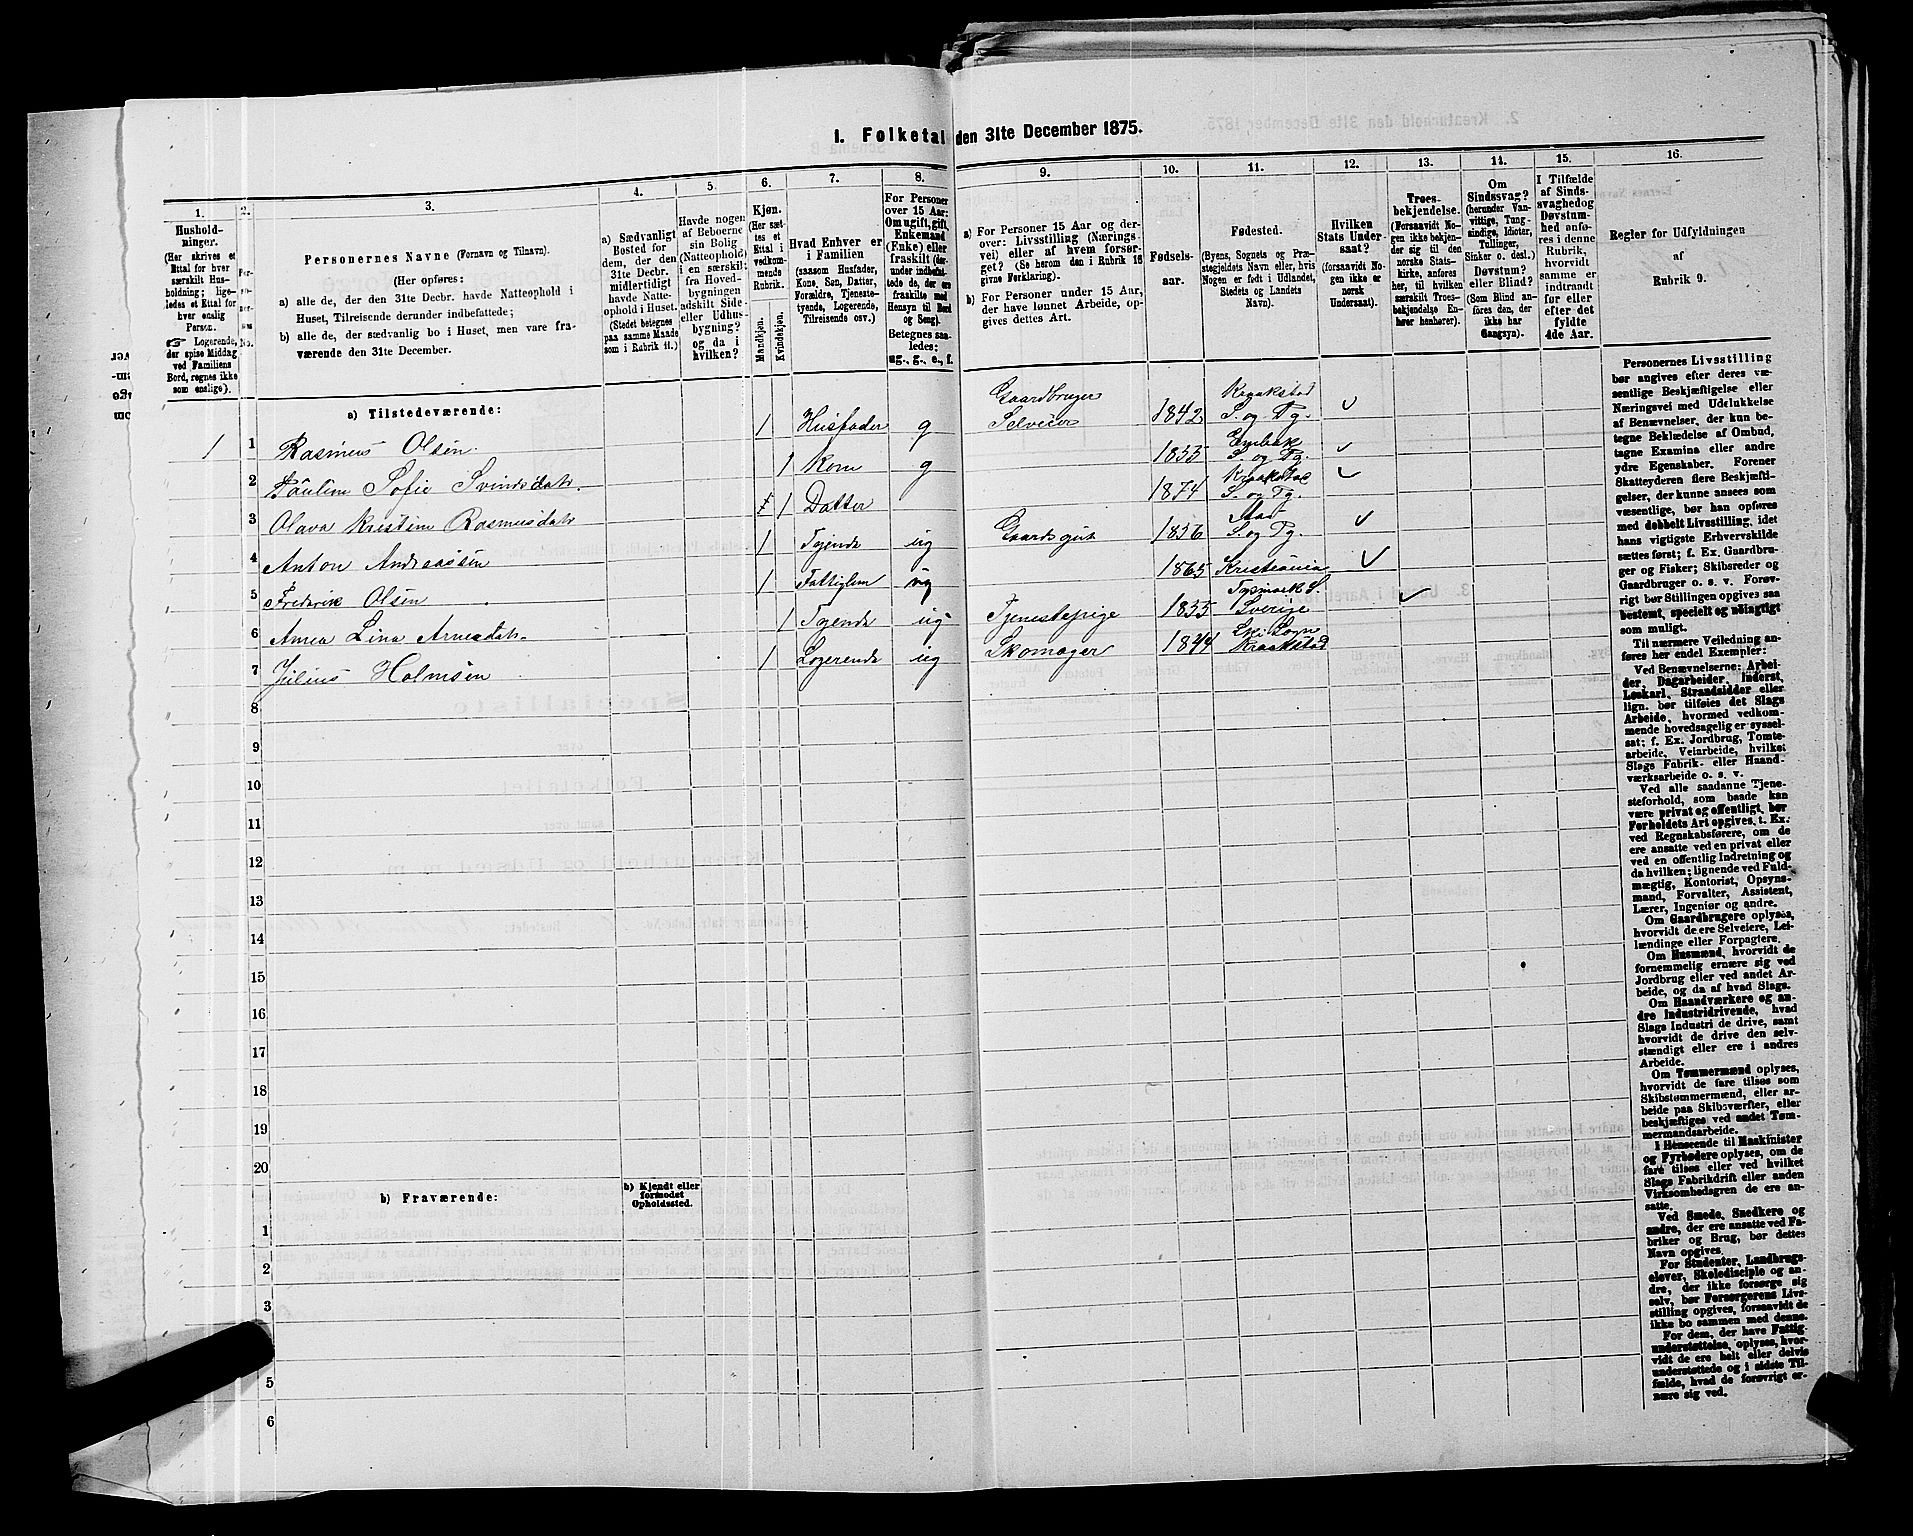 1. Folketal den 31te December 1875.
1.
Hushold-
ninger.
(Her skrives et
Ettal for hver
særskilt Hus-
holdning; lige-
ledes et Ettal for
hver enslig
Person.
☞ Logerende,
der spise Middag
ved Familiens
Bord, regnes ikke
som enslige).
2.
Per-
No.
3.
Personernes Navne (Fornavn og Tilnavn).
(Her opføres:
a) alle de, der den 31te Decbr. havde Natteophold i
Huset, Tilreisende derunder indbefattede;
b) alle de, der sædvanlig bo i Huset, men vare fra-
værende den 31te December.
4.
a) Sædvanligt
Bosted for
dem, der den
31te Decbr.
midlertidigt
havde Natte-
ophold i Huset.
(Stedet betegnes
paa samme Maade
som i Rubrik 11.)
5.
Havde nogen
af Beboerne
sin Bolig
(Natteophold)
i en særskilt
fra Hoved-
bygningen
adskilt Side-
eller Udhus-
bygning?
og da i
hvilken?
6.
Kjøn.
(Her sæt-
tes et
Ettal i
vedkom-
mende
Rubrik.
Mandkjøn.
Kvindekjøn.
7.
Hvad Enhver er
i Familien
(saasom Husfader,
Kone, Søn, Datter,
Forældre, Tjeneste-
tyende, Logerende,
Tilreisende osv.)
8.
For Personer
over 15 Aar:
Om ugift, gift,
Enkemand
(Enke) eller
fraskilt (der-
under indbefat-
tede de, der ere
fraskilte med
Hensyn til Bord
og Seng).
Betegnes saa-
ledes:
ug., g., e., f.
9.
a) For Personer 15 Aar og der-
over: Livsstilling (Nærings-
vei) eller af hvem forsør-
get? (Se herom den i Rubrik 16
givne Forklaring).
b) For Personer under 15 Aar,
der have lønnet Arbeide, op-
gives dettes Art.
10.
Fødsels-
aar.
11.
Fødested.
(Byens, Sognets og Præ-
stegjeldets Navn eller, hvis
Nogen er født i Udlandet,
Stedets og Landets
Navn).
12.
Hvilken
Stats Under-
saat?
(forsaavidt No-
gen ikke er
norsk
Undersaat).
13.
Troes-
bekjendelse.
(Forsaavidt No-
gen ikke bekjen-
der sig til den
norske Stats-
kirke, anføres
her, til hvilken
særskilt Troes-
bekjendelse En-
hver henhører).
14.
Om
Sindssvag?
(herunder Van-
vittige, Tung-
sindige, Idioter,
Tullinger,
Sinker o. desl.).
Døvstum?
eller Blind?
(Som Blind an-
føres den, der
ikke har
Gangsyn).
15.
I Tilfælde
af Sinds-
svaghed og
Døvstum-
hed anfø-
res i denne
Rubrik,
hvorvidt
samme er
indtraadt
før eller
efter det
fyldte
4de Aar.
16.
Regler for Udfyldningen
af
Rubrik 9.
a) Tilstedeværende:
1 1 Rasmus Olsen. 1 Husfader g Gaardbruger Selveier 1842 Kraakstad S. og Pg. ✓
2 Pauline Sofie Svindsdatr. 1 Kone g S. og Pg. ✓
3 Olava Kristine Rasmusdatr 1 Datter 1874 Kraakstad S. og Pg. ✓
4 Anton Andreassen 1 Tyende ug Gaardsgut 1856 S. og Pg. ✓
5 Frederik Olsen 1 Fattiglem ug 1865 Kristiania ✓
6 Anna Lina Arnesdatr. 1 Tyende ug Tjenestepige Sverige ✓
7 Julius Holmsen 1 Logerende ug Skomager 1844 Ski Sogn Kraakstad
8
9
10
11
12
13
14
15
16
17
18
19
20
b) Fraværende:
b) Kjendt eller
formodet
Opholdssted.
1
2
3
5
6
Personernes Livsstilling
bør angives efter deres væ-
sentlige Beskjæftigelse eller
Næringsvei med Udelukkelse
af Benævnelser, der kun be-
tegne Beklædelse af Ombud,
tagne Examina eller andre
ydre Egenskaber. Forener
Skatteyderen flere Beskjæfti-
gelser, der kunne ansees som
væsentlige, bør han opføres
med dobbelt Livsstilling, idet
hans vigtigste Erhvervskilde
sættes først; f. Ex. Gaardbru-
ger og Fisker; Skibsreder og
Gaardbruger o. s. v. Forøv-
rigt bør Stillingen opgives saa
bestemt, specielt og nøiagtigt
som muligt.
Til nærmere Veiledning an-
føres her endel Exempler:
Ved Benævnelserne: Arbei-
der, Dagarbeider, Inderst,
Løskarl, Strandsidder eller
lign. bør tilføies det Slags
Arbeide, hvormed vedkom-
mende hovedsagelig er syssel-
sat; f. Ex. Jordbrug, Tomte-
arbeide, Veiarbeide, hvilket
Slags Fabrik- eller Haand-
værksarbeide o. s. v.
Ved alle saadanne Tjene-
steforhold, som baade kan
være privat og offentligt, bør
Forholdets Art opgives, t. Ex.
ved Regnskabsførere, om de
ere ansatte ved en privat eller
ved en offentlig Indretning og
da hvilken; lignende ved Fuld-
mægtig, Kontorist, Opsyns-
mand, Forvalter, Assistent,
Lærer, Ingeniør og andre.
Om Gaardbrugere oplyses,
hvorvidt de ere Selveiere, Lei-
lændinge eller Forpagtere.
Om Husmænd, hvorvidt de
fornemmelig ernære sig ved
Jordbrug eller ved andet Ar-
beide, og da af hvad Slags.
Om Haandværkere og an-
dre Industridrivende, hvad
Slags Industri de drive, samt
hvorvidt de drive den selv-
stændigt eller ere i andres
Arbeide.
Om Tømmermænd oplyses,
hvorvidt de fare tilsøs som
Skibstømmermænd, eller ar-
beide paa Skibsværfter, eller
beskjæftiges ved andet Tøm-
mermandsarbeide.
I Henseende til Maskinister
og Fyrbødere oplyses, om de
fare tilsøs eller ved hvilket
Slags Fabrikdrift eller anden
Virksombedsgren de ere an-
satte.
Ved Smede, Snedkere og
andre, der ere ansatte ved Fa-
briker og Brug, bør dettes
Navn opgives.
For Studenter, Landbrugs-
elever, Skoledisciple og an-
dre, der ikke forsørge sig
selv, bør Forsørgerens Livs-
stilling opgives, forsaavidt de
ikke bo sammen med denne.
For dem, der have Fattig-
understøttelse, oplyses, hvor-
vidt de ere helt eller delvis
understøttede og i sidste Til-
fælde, hvad de forøvrigt er-
nære sig ved.